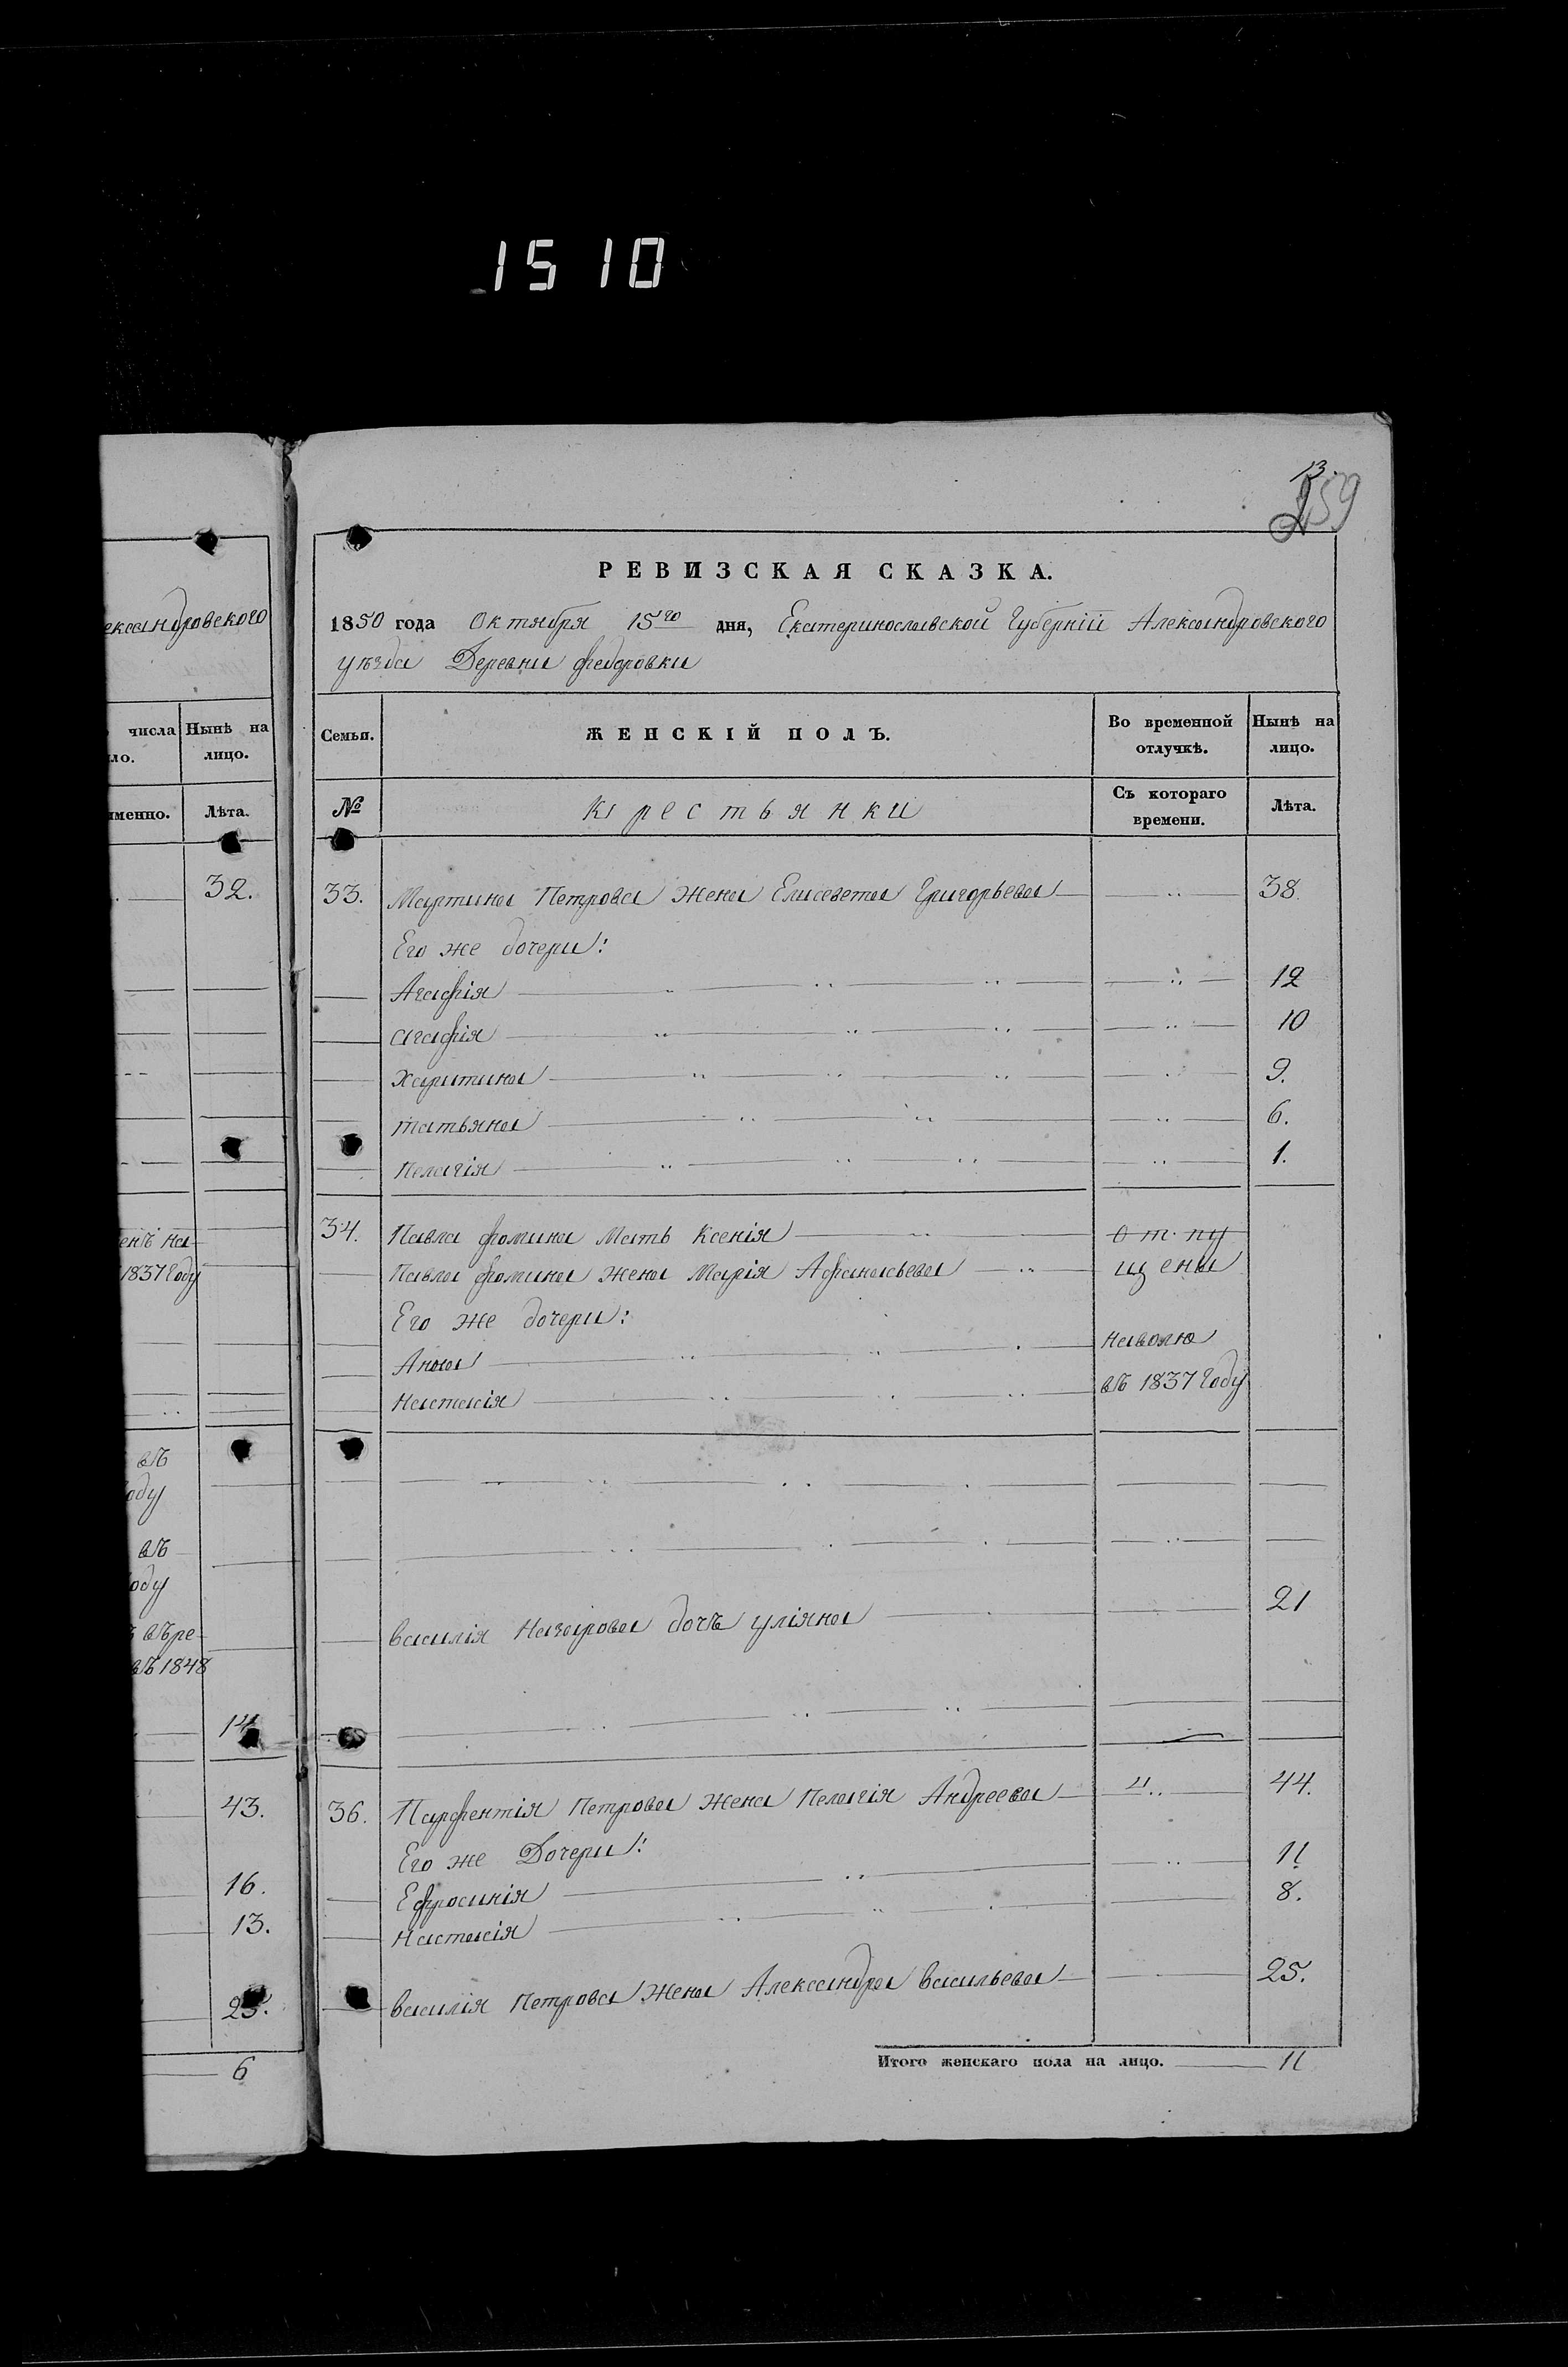 1510
13.
259
РЕВИЗСКАЯ СКАЗКА.
1850 года Октября 15го дня, Екатеринославской Губерніи Александровского
уѣзда Деревни Федоровки
Семьи.
ЖЕНСКІЙ ПОЛЪ.
Во временной отлучкѣ.
Нынѣ на лицо.
№
крестьянки
Съ котораго времени.
Лѣта.
33. Мартина Петрова жена Елисавета Григорьева 38.
Его же дочери:
Агафія 12
агафія 10
Харитина 9.
татьяна 6.
Пелагія 1.
34. Павла фомина Мать Ксенія отпу
Павла фомина жена Марія Афанасьева щены
Его же дочери:
наволю
Анна
въ 1837 Году
Настасія
василія Назарова дочь уліяна 21
36. Парфентія Петрова жена Пелагія Андреева 44.
Его же Дочери:
Ефросинія 11
Настасія 8.
василія Петрова жена Александра васильева 25.
Итого женскаго пола на лицо. 11
ександровского
числа
ло.
Нынѣ на
лицо.
именно.
Лѣта.
32.
енъ на-
1837 Году
въ
оду
въ
оду
въ ре-
въ 1848
14.
43.
16.
13.
25.
6